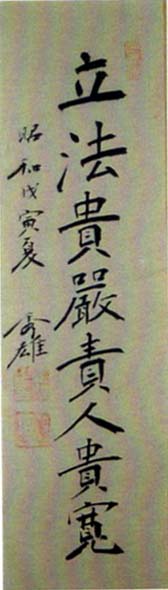 立法貴嚴責人貴寬
昭和戊寅夏 秀雄